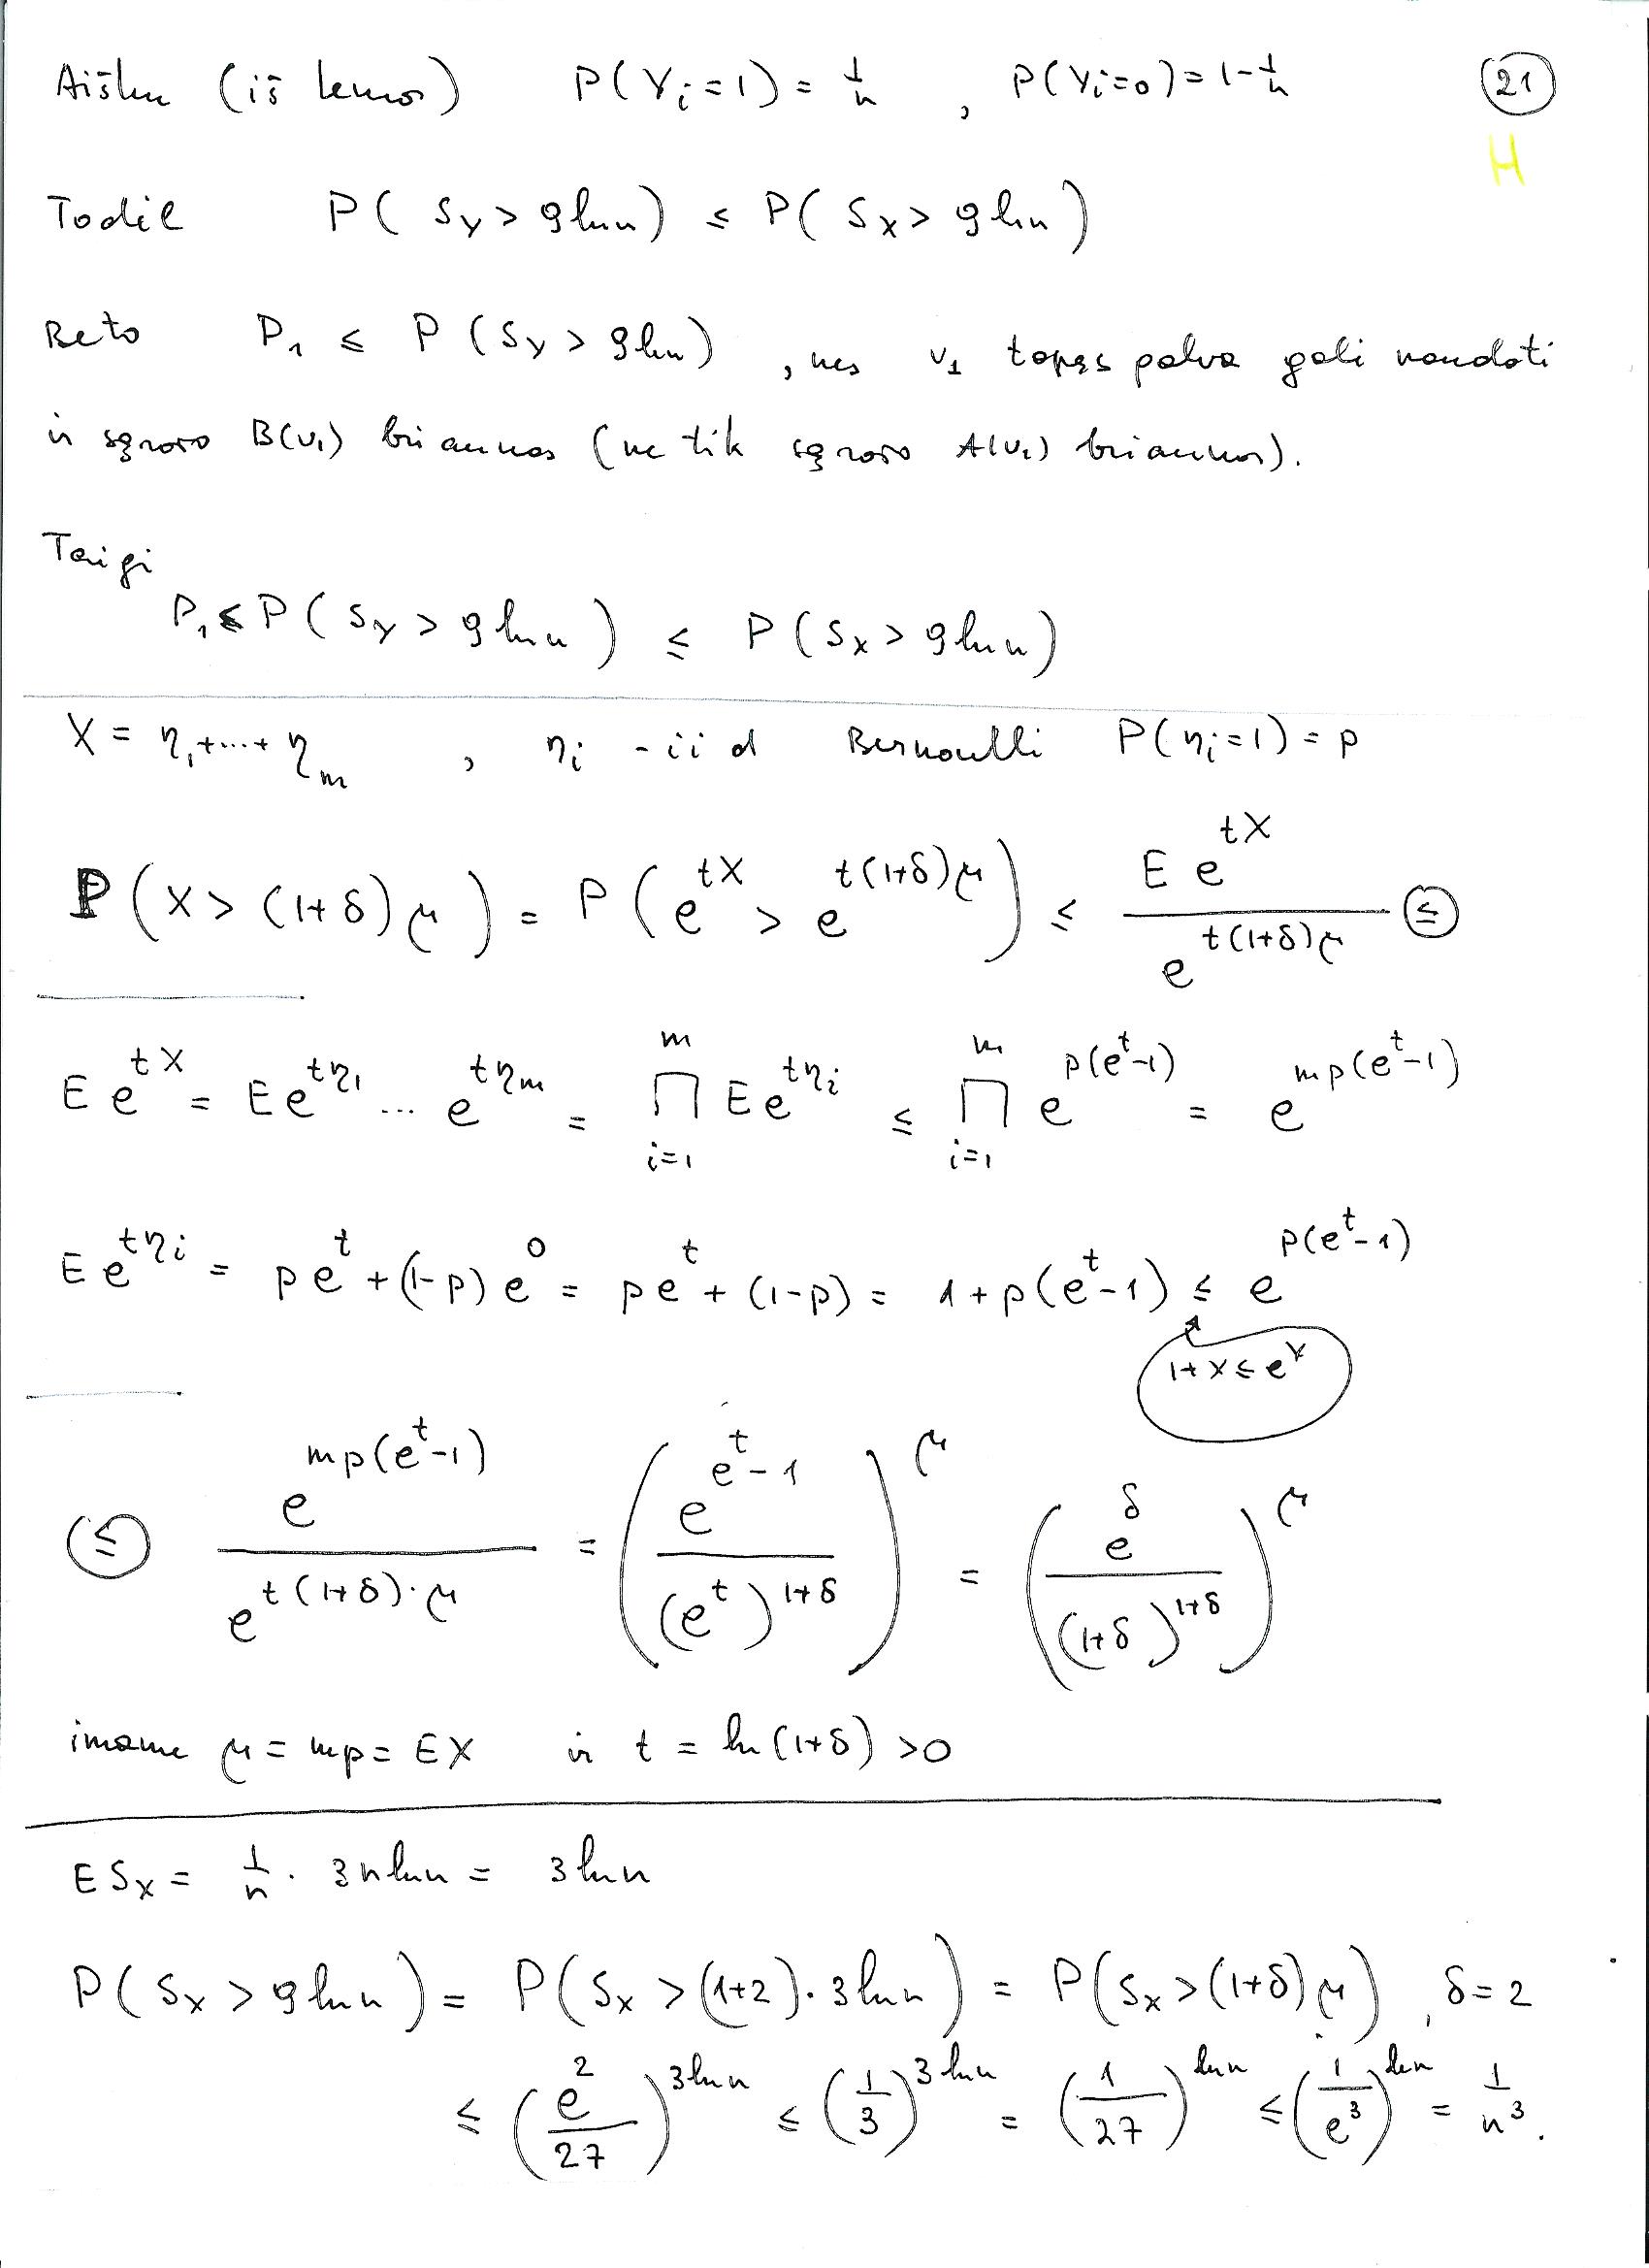 Aišku (iš lemos) P(Yᵢ=1) = 1/n , P(Yᵢ=0) = 1-1/n (21)
H
Todėl P( S_Y > 9 ln n ) ≤ P( S_X > 9 ln n )
Be to P₁ ≤ P ( S_Y > 9 ln n ) , nes v₁ tapęs gali naudoti
ir sąrašo B(v₁) briaunas (ne tik sąrašo A(v₁) briaunas).
Taigi
P₁ ≤ P ( S_Y > 9 ln n ) ≤ P ( S_X > 9 ln n )
X = η₁+...+η_m , ηᵢ - iid Bernoulli P(ηᵢ=1) = p
P ( X > (1+δ) μ ) = P ( e^{tX} > e^{t(1+δ)μ} ) ≤ E e^{tX} / e^{t(1+δ)μ} (≤)
E e^{tX} = E e^{tη₁} ... e^{tη_m} = ∏_{i=1}^{m} E e^{tηᵢ} ≤ ∏_{i=1}^{m} e^{p(e^t-1)} = e^{mp(e^t-1)}
E e^{tηᵢ} = p e^t + (1-p) e^0 = p e^t + (1-p) = 1 + p(e^t-1) ≤ e^{p(e^t-1)}
1+x ≤ e^x
(≤) e^{mp(e^t-1)} / e^{t(1+δ)·μ} = ( e^{e^t-1} / (e^t)^{1+δ} )^μ = ( e^δ / (1+δ)^{1+δ} )^μ
imame μ = mp = EX ir t = ln(1+δ) > 0
E S_X = 1/n · 3n ln n = 3 ln n
P ( S_X > 9 ln n ) = P ( S_X > (1+2)·3 ln n ) = P( S_X > (1+δ) μ ) , δ=2
≤ ( e²/27 )^{3 ln n} ≤ ( 1/3 )^{3 ln n} = ( 1/27 )^{ln n} ≤ ( 1/e³ )^{ln n} = 1/n³ .